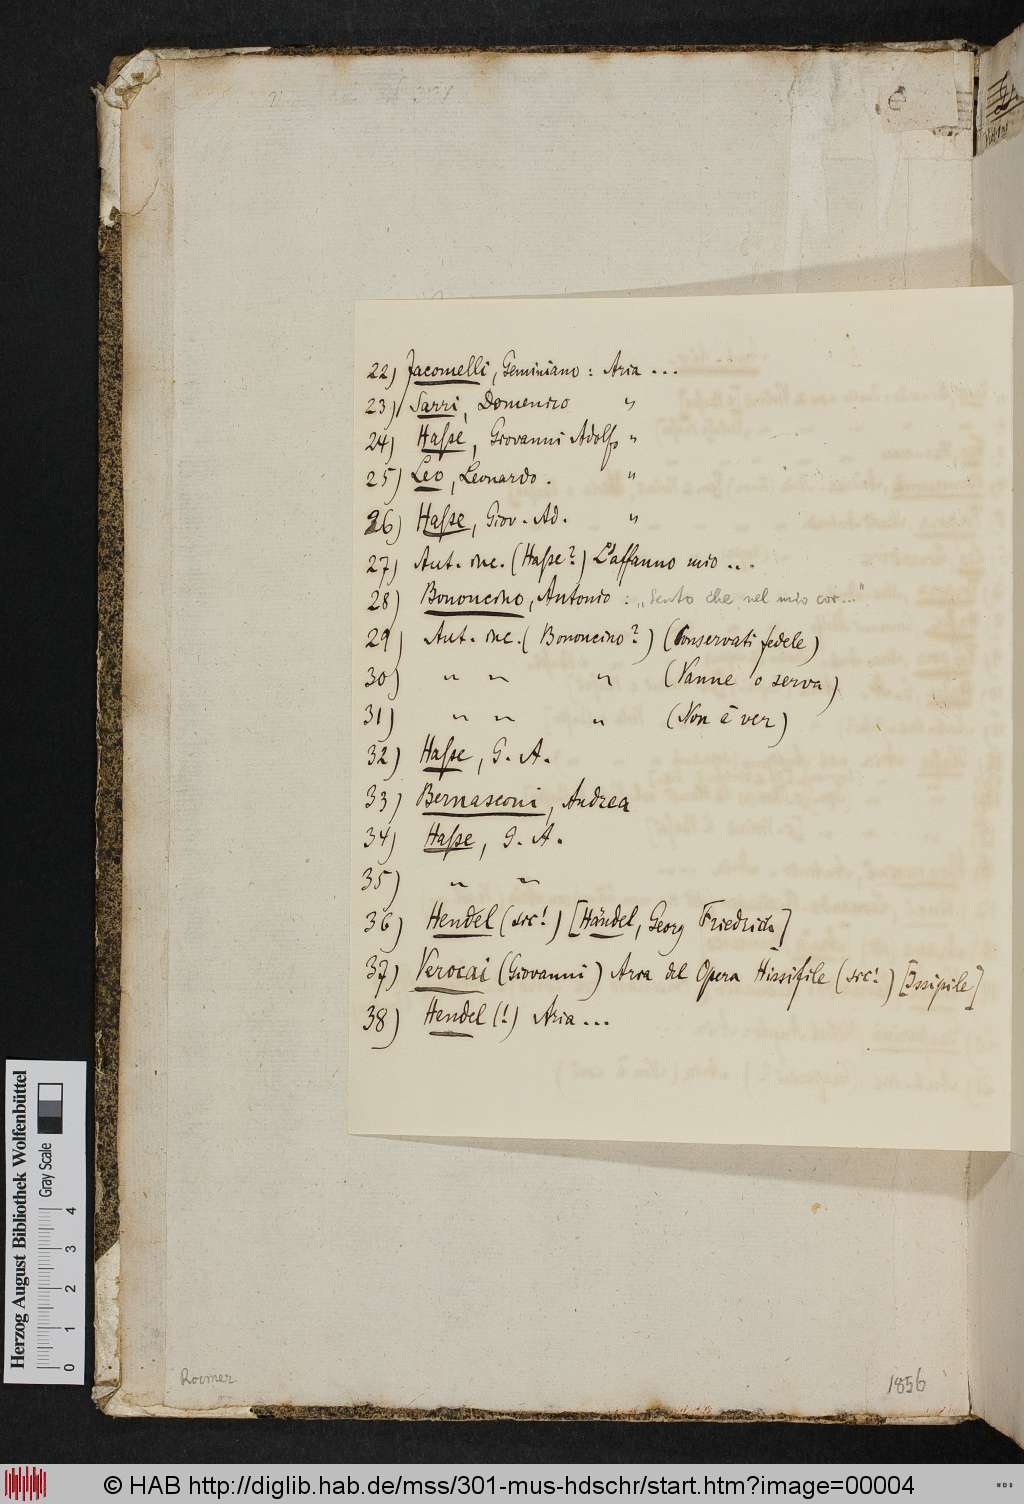 22) Jacomelli, Geminiano : Aria ...
23) Sarri, Domenico "
24) Haſse, Giovanni Adolfo "
25) Leo, Leonardo. "
26) Haſse, Giov. Ad. "
27) Aut. inc. (Haſse?) L'affanno mio ...
28) Bononcino, Antonio : „Sento che nel mio cor..."
29) Aut. inc. (Bononcino?) (Conservati fedele)
30) " " " (Vanne o serva)
31) " " " (Non è ver)
32) Haſse, G. A.
33) Bernasconi, Andrea
34) Haſse, G. A.
35) " "
36) Hendel (sic!) [Händel, Georg Friedrich]
37) Verocai (Giovanni) Aria del Opera Hissifile (sic!) [Issipile]
38) Hendel (!) Aria ...
Roemer
1856
Herzog August Bibliothek Wolfenbüttel
Gray Scale
0 1 2 3 4
© HAB http://diglib.hab.de/mss/301-mus-hdschr/start.htm?image=00004